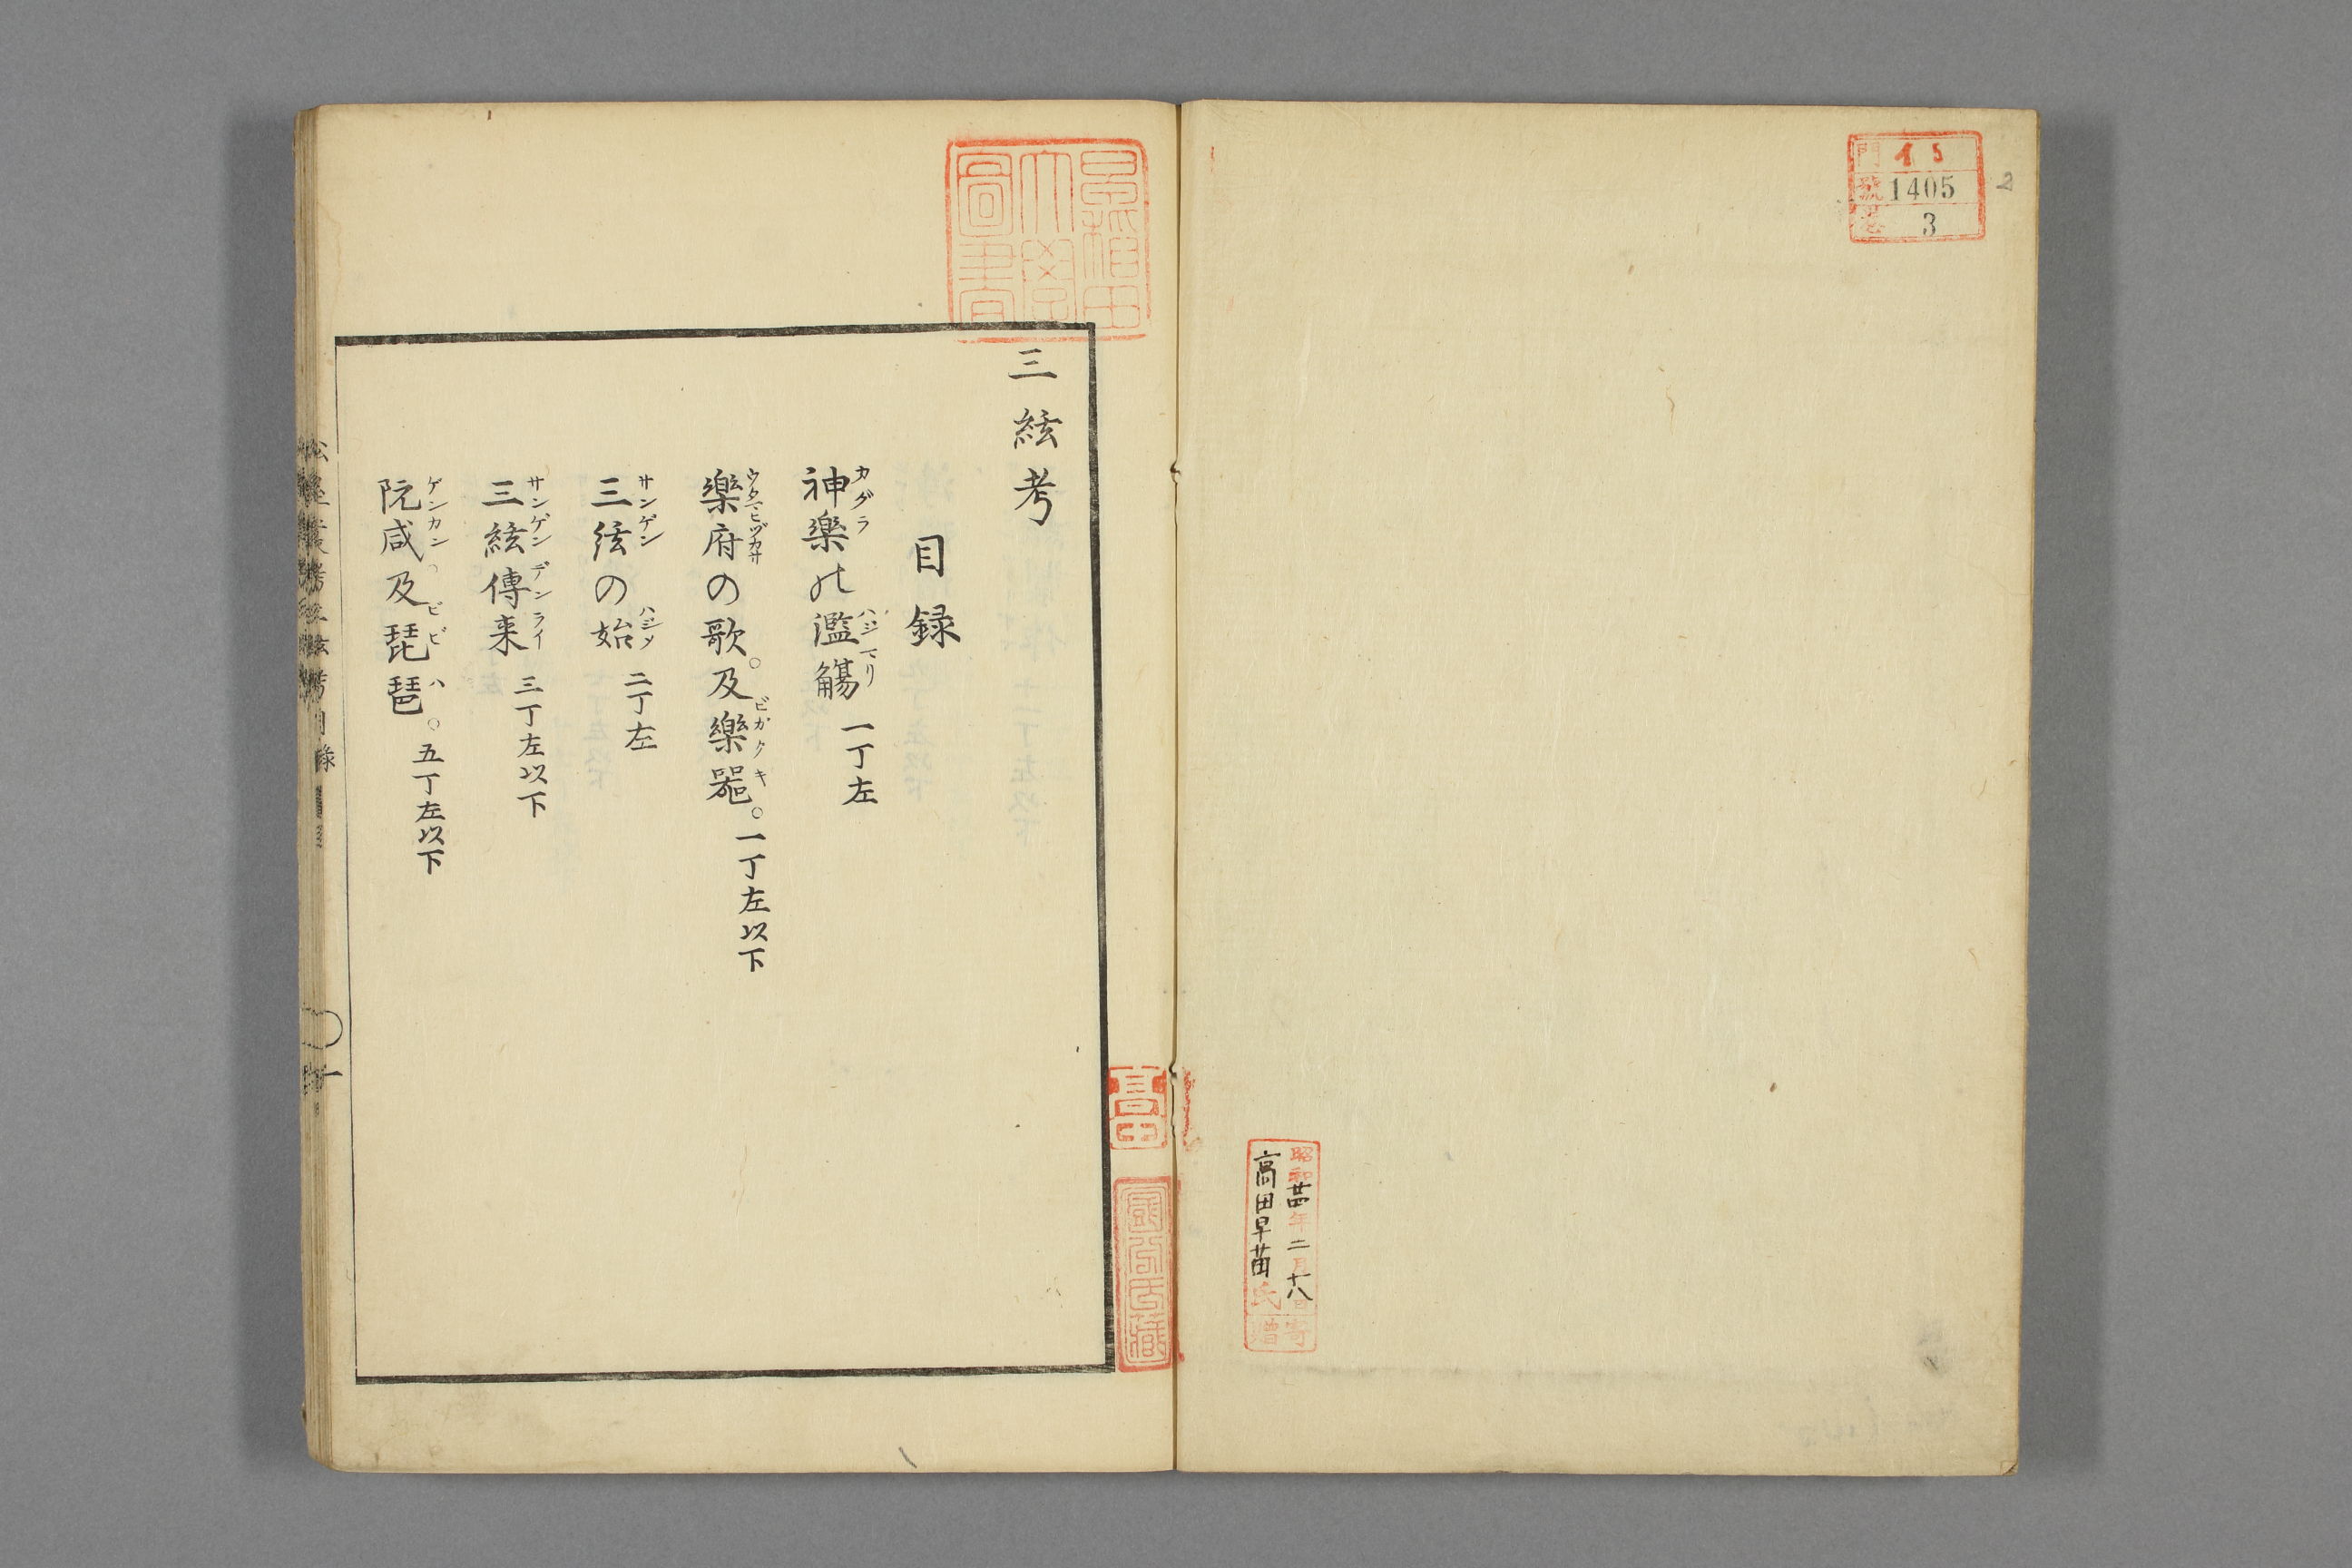 門 イ5
號 1405
巻 3
2
昭和廿四年二月十八日寄
高田早苗氏贈
早稲田大學圖書
高田
三絃考
目録
神樂の濫觴 一丁左
カグラ ハジマリ
樂府の歌。及樂器。一丁左以下
三絃の始 二丁左
サンゲン ハジメ
三絃傳来 三丁左以下
サンゲンデンライ
阮咸及琵琶。五丁左以下
ゲンカン